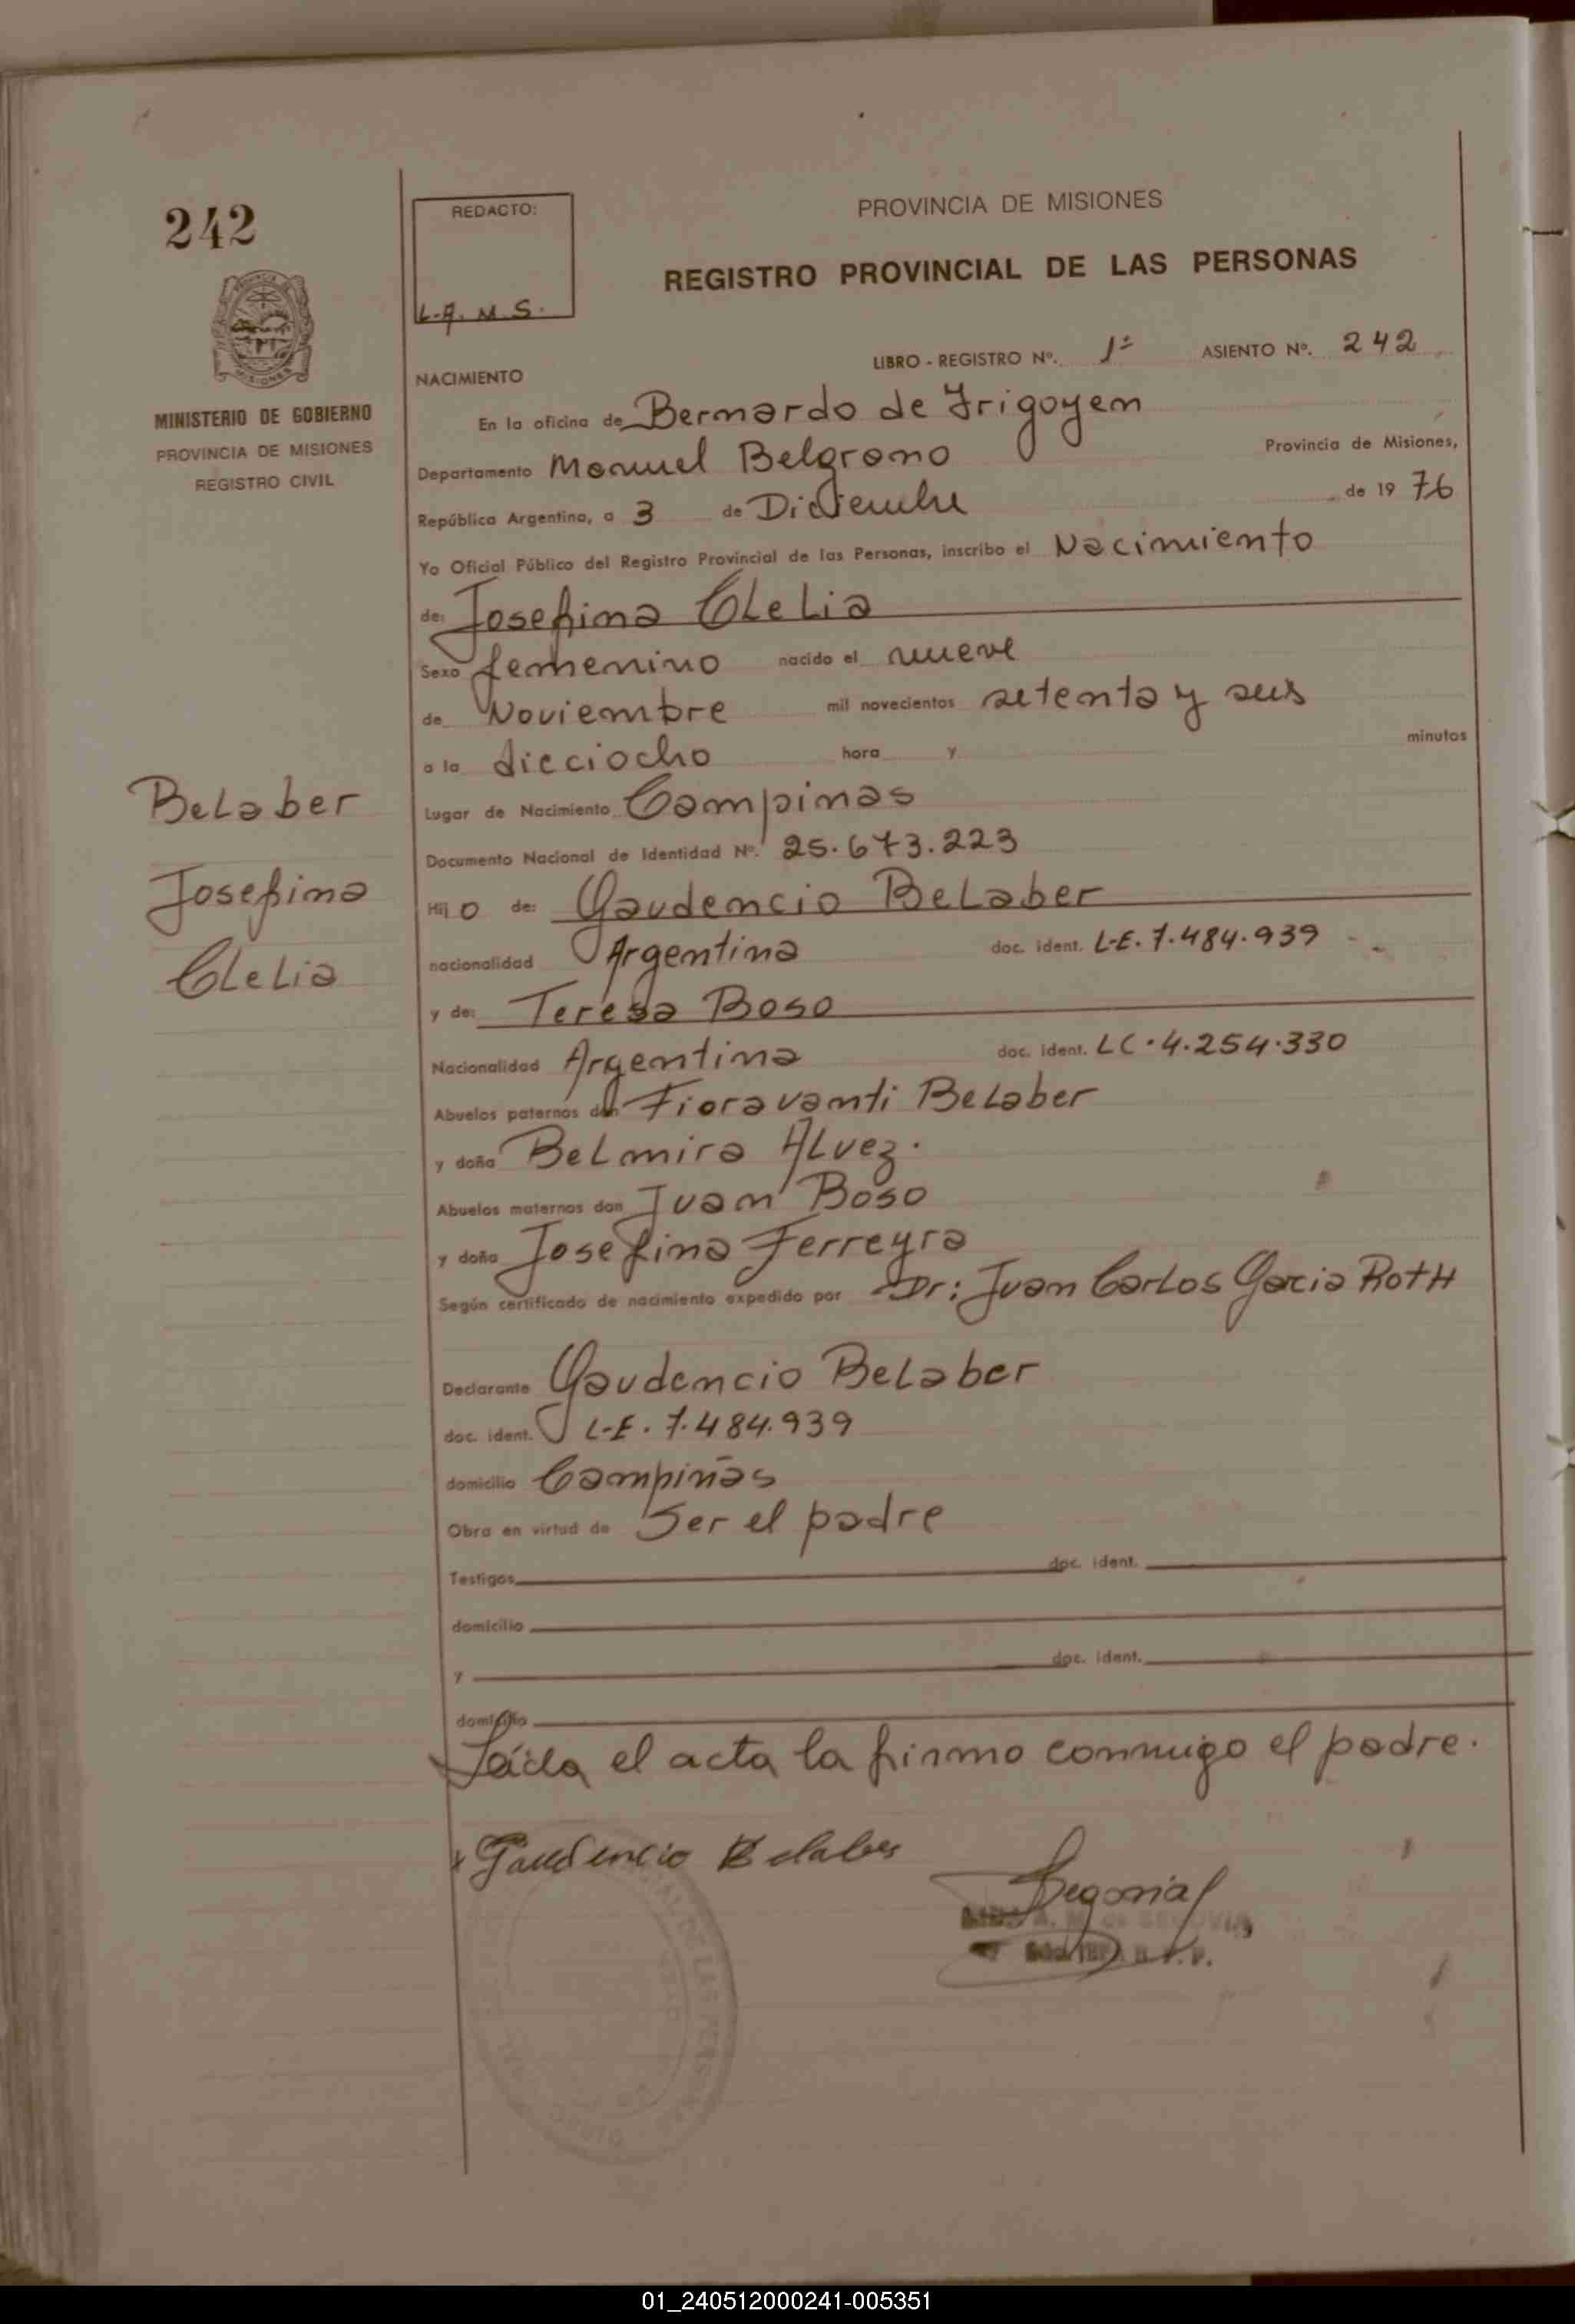 242
REDACTO:
L-A. M. S.
PROVINCIA DE MISIONES
REGISTRO PROVINCIAL DE LAS PERSONAS
MINISTERIO DE GOBIERNO
PROVINCIA DE MISIONES
REGISTRO CIVIL
LIBRO - REGISTRO Nº. 1º ASIENTO Nº. 242
NACIMIENTO
En la oficina de Bernardo de Irigoyen
Departamento Manuel Belgrano Provincia de Misiones,
República Argentina, a 3 de Diciembre de 1976
Yo Oficial Público del Registro Provincial de las Personas, inscribo el Nacimiento
de: Josefina Clelia
Sexo femenino nacido el nueve
de Noviembre mil novecientos setenta y seis
a la dieciocho hora y minutos
Lugar de Nacimiento Campinas
Documento Nacional de Identidad Nº. 25.673.223
Belaber
Josefina
Clelia
Hijo de: Gaudencio Belaber
nacionalidad Argentina doc. ident. L-E. 7.484.939
y de: Teresa Boso
Nacionalidad Argentina doc. ident. LC. 4.254.330
Abuelos paternos don Fioravanti Belaber
y doña Belmira Alvez.
Abuelos maternos don Juan Boso
y doña Josefina Ferreyra
Según certificado de nacimiento expedido por Dr: Juan Carlos Garcia Roth
Declarante Gaudencio Belaber
doc. ident. L-E. 7.484.939
domicilio Campiñas
Obra en virtud de Ser el padre
Testigos doc. ident.
domicilio
y doc. ident.
domicilio
Leída el acta la firmo conmigo el padre.
x Gaudencio Belaber
01_240512000241-005351